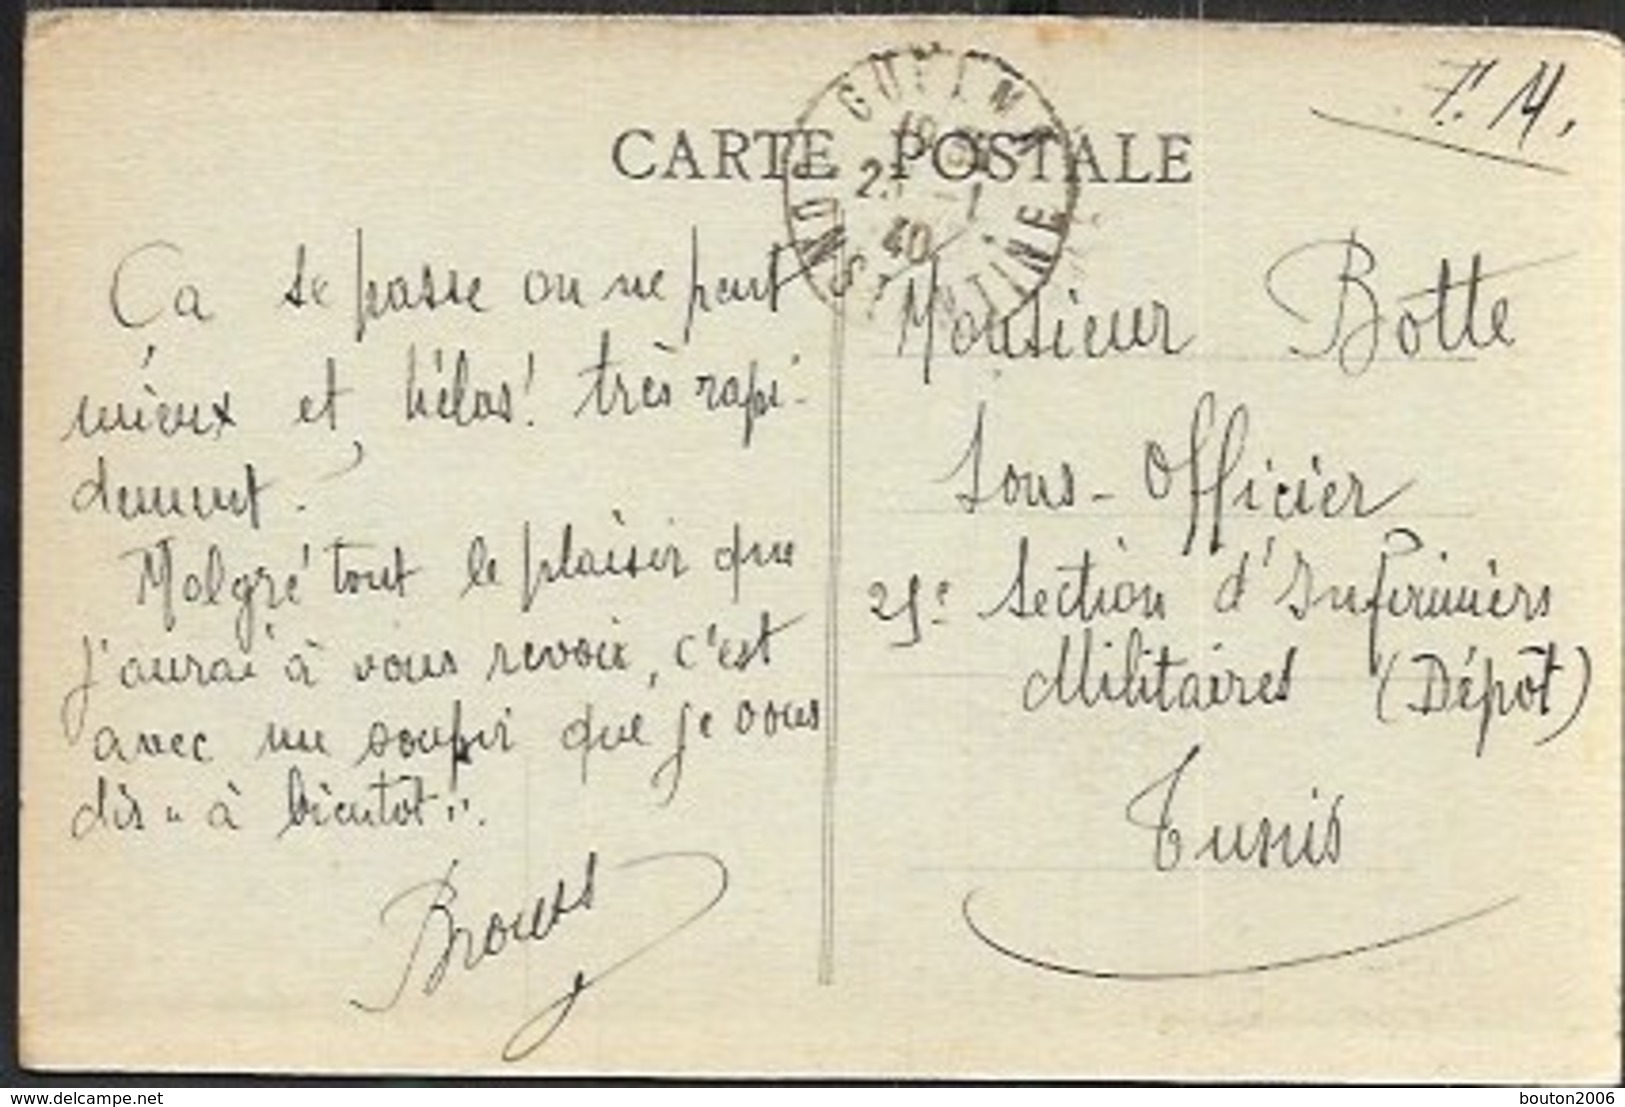 CARTE POSTALE
F. M.
GUELMA
CONSTANTINE
40
Ça se passe on ne peut
mieux et, hélas! très rapi-
dement.
Malgré tout le plaisir que
j'aurai à vous revoir, c'est
avec un soupir que je vous
dis "à bientôt".
Monsieur Botte
Sous-Officier
25e Section d'Infirmiers
Militaires (Dépôt)
Tunis
delcampe.net
bouton2006